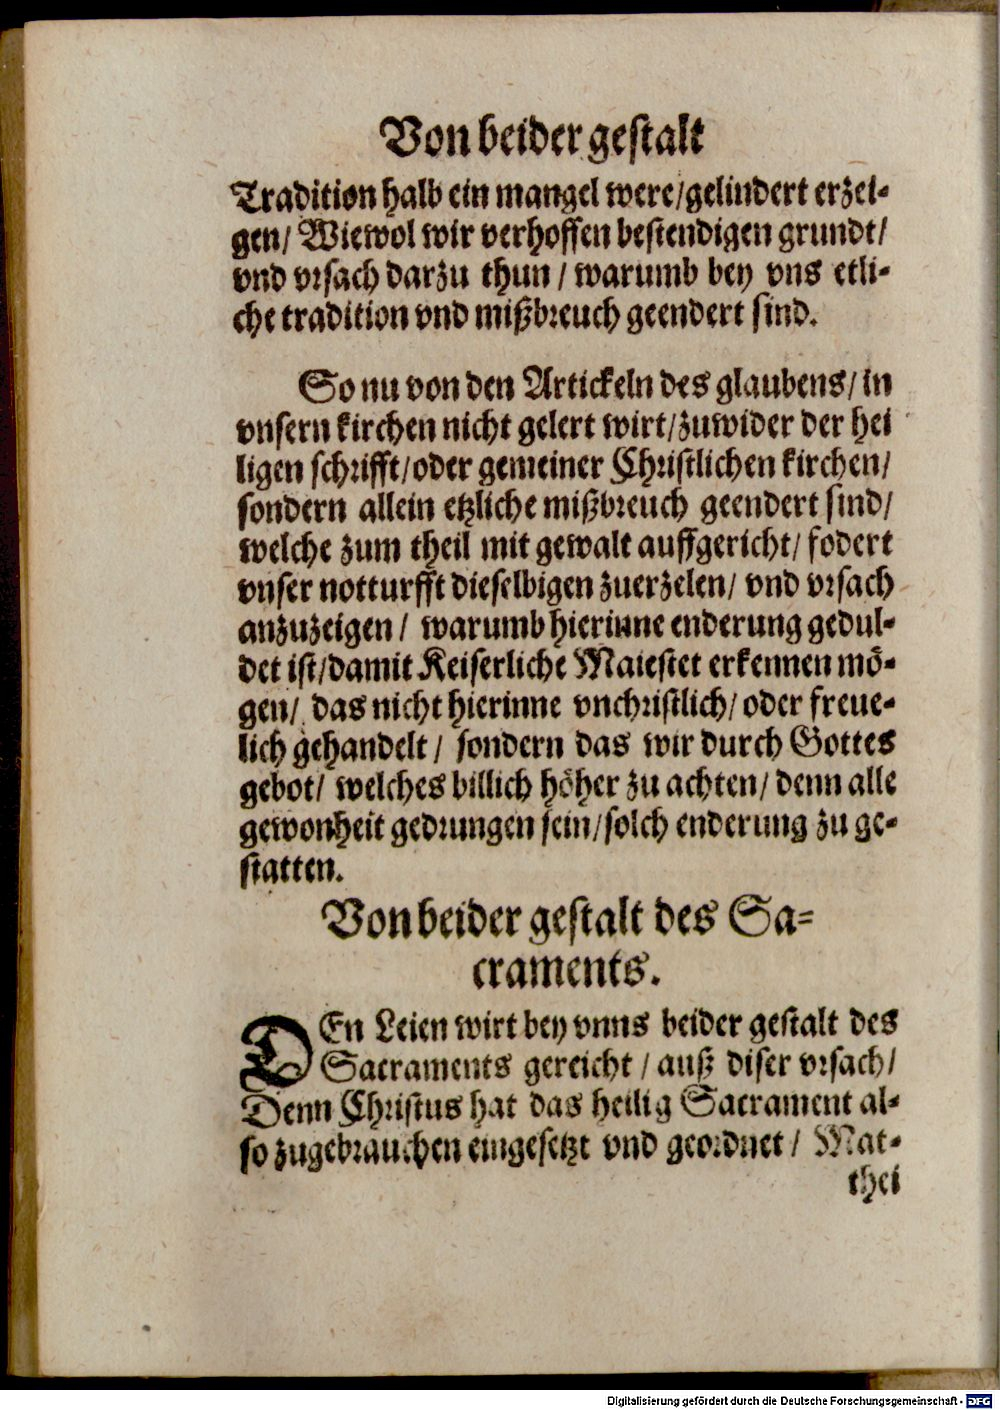 Von beider gestalt
Tradition halb ein mangel were/gelindert erzei-
gen/ Wiewol wir verhoffen bestendigen grundt/
vnd vrsach darzu thun / warumb bey vns etli-
che tradition vnd mißbreuch geendert sind.
So nu von den Artickeln des glaubens/ in
vnsern kirchen nicht gelert wirt/zuwider der hei
ligen schrifft/oder gemeiner Christlichen kirchen/
sondern allein etzliche mißbreuch geendert sind/
welche zum theil mit gewalt auffgericht/ fodert
vnser notturfft dieselbigen zuerzelen/ vnd vrsach
anzuzeigen / warumb hierinne enderung gedul-
det ist/damit Keiserliche Maiestet erkennen mö-
gen/ das nicht hierinne vnchristlich/ oder freue-
lich gehandelt / sondern das wir durch Gottes
gebot/ welches billich höher zu achten/ denn alle
gewonheit gedrungen sein/solch enderung zu ge-
statten.
Von beider gestalt des Sa=
craments.
DEn Leien wirt bey vnns beider gestalt des
Sacraments gereicht / auß diser vrsach/
Denn Christus hat das heilig Sacrament al-
so zugebrauchen eingesetzt vnd geordnet / Mat-
thei
Digitalisierung gefördert durch die Deutsche Forschungsgemeinschaft - DFG